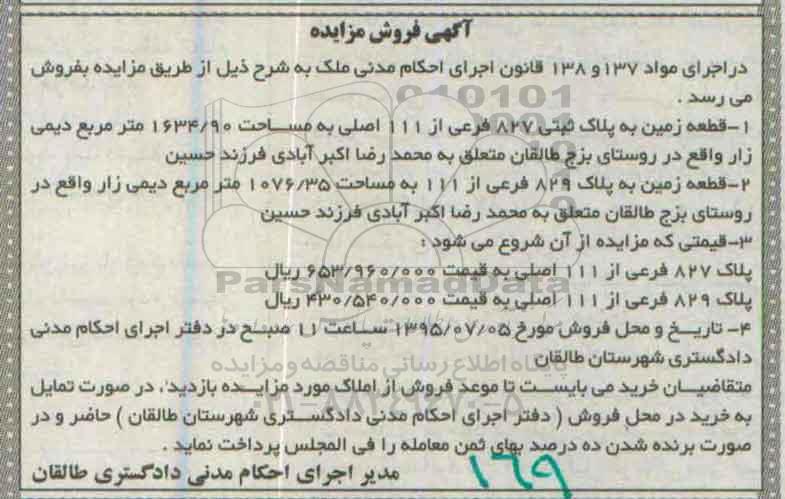 آگهی فروش مزایده
دراجرای مواد ۱۳۷ و ۱۳۸ قانون اجرای احکام مدنی ملک به شرح ذیل از طریق مزایده بفروش
می رسد .
۱-قطعه زمین به پلاک ثبتی ۸۲۷ فرعی از ۱۱۱ اصلی به مساحت ۱۶۳۴/۹۰ متر مربع دیمی
زار واقع در روستای بزج طالقان متعلق به محمد رضا اکبر آبادی فرزند حسین
۲-قطعه زمین به پلاک ۸۲۹ فرعی از ۱۱۱ به مساحت ۱۰۷۶/۳۵ متر مربع دیمی زار واقع در
روستای بزج طالقان متعلق به محمد رضا اکبر آبادی فرزند حسین
۳-قیمتی که مزایده از آن شروع می شود :
پلاک ۸۲۷ فرعی از ۱۱۱ اصلی به قیمت ۶۵۳/۹۶۰/۰۰۰ ریال
ParsNamadData
پلاک ۸۲۹ فرعی از ۱۱۱ اصلی به قیمت ۴۳۰/۵۴۰/۰۰۰ ریال
۴- تاریخ و محل فروش مورخ ۱۳۹۵/۰۷/۰۵ ساعت ۱۱ صبح در دفتر اجرای احکام مدنی
دادگستری شهرستان طالقان
پایگاه اطلاع رسانی مناقصه و مزایده
متقاضیان خرید می بایست تا موعد فروش از املاک مورد مزایده بازدید ، در صورت تمایل
به خرید در محل فروش ( دفتر اجرای احکام مدنی دادگستری شهرستان طالقان ) حاضر و در
صورت برنده شدن ده درصد بهای ثمن معامله را فی المجلس پرداخت نماید .
مدیر اجرای احکام مدنی دادگستری طالقان
۱۶۹